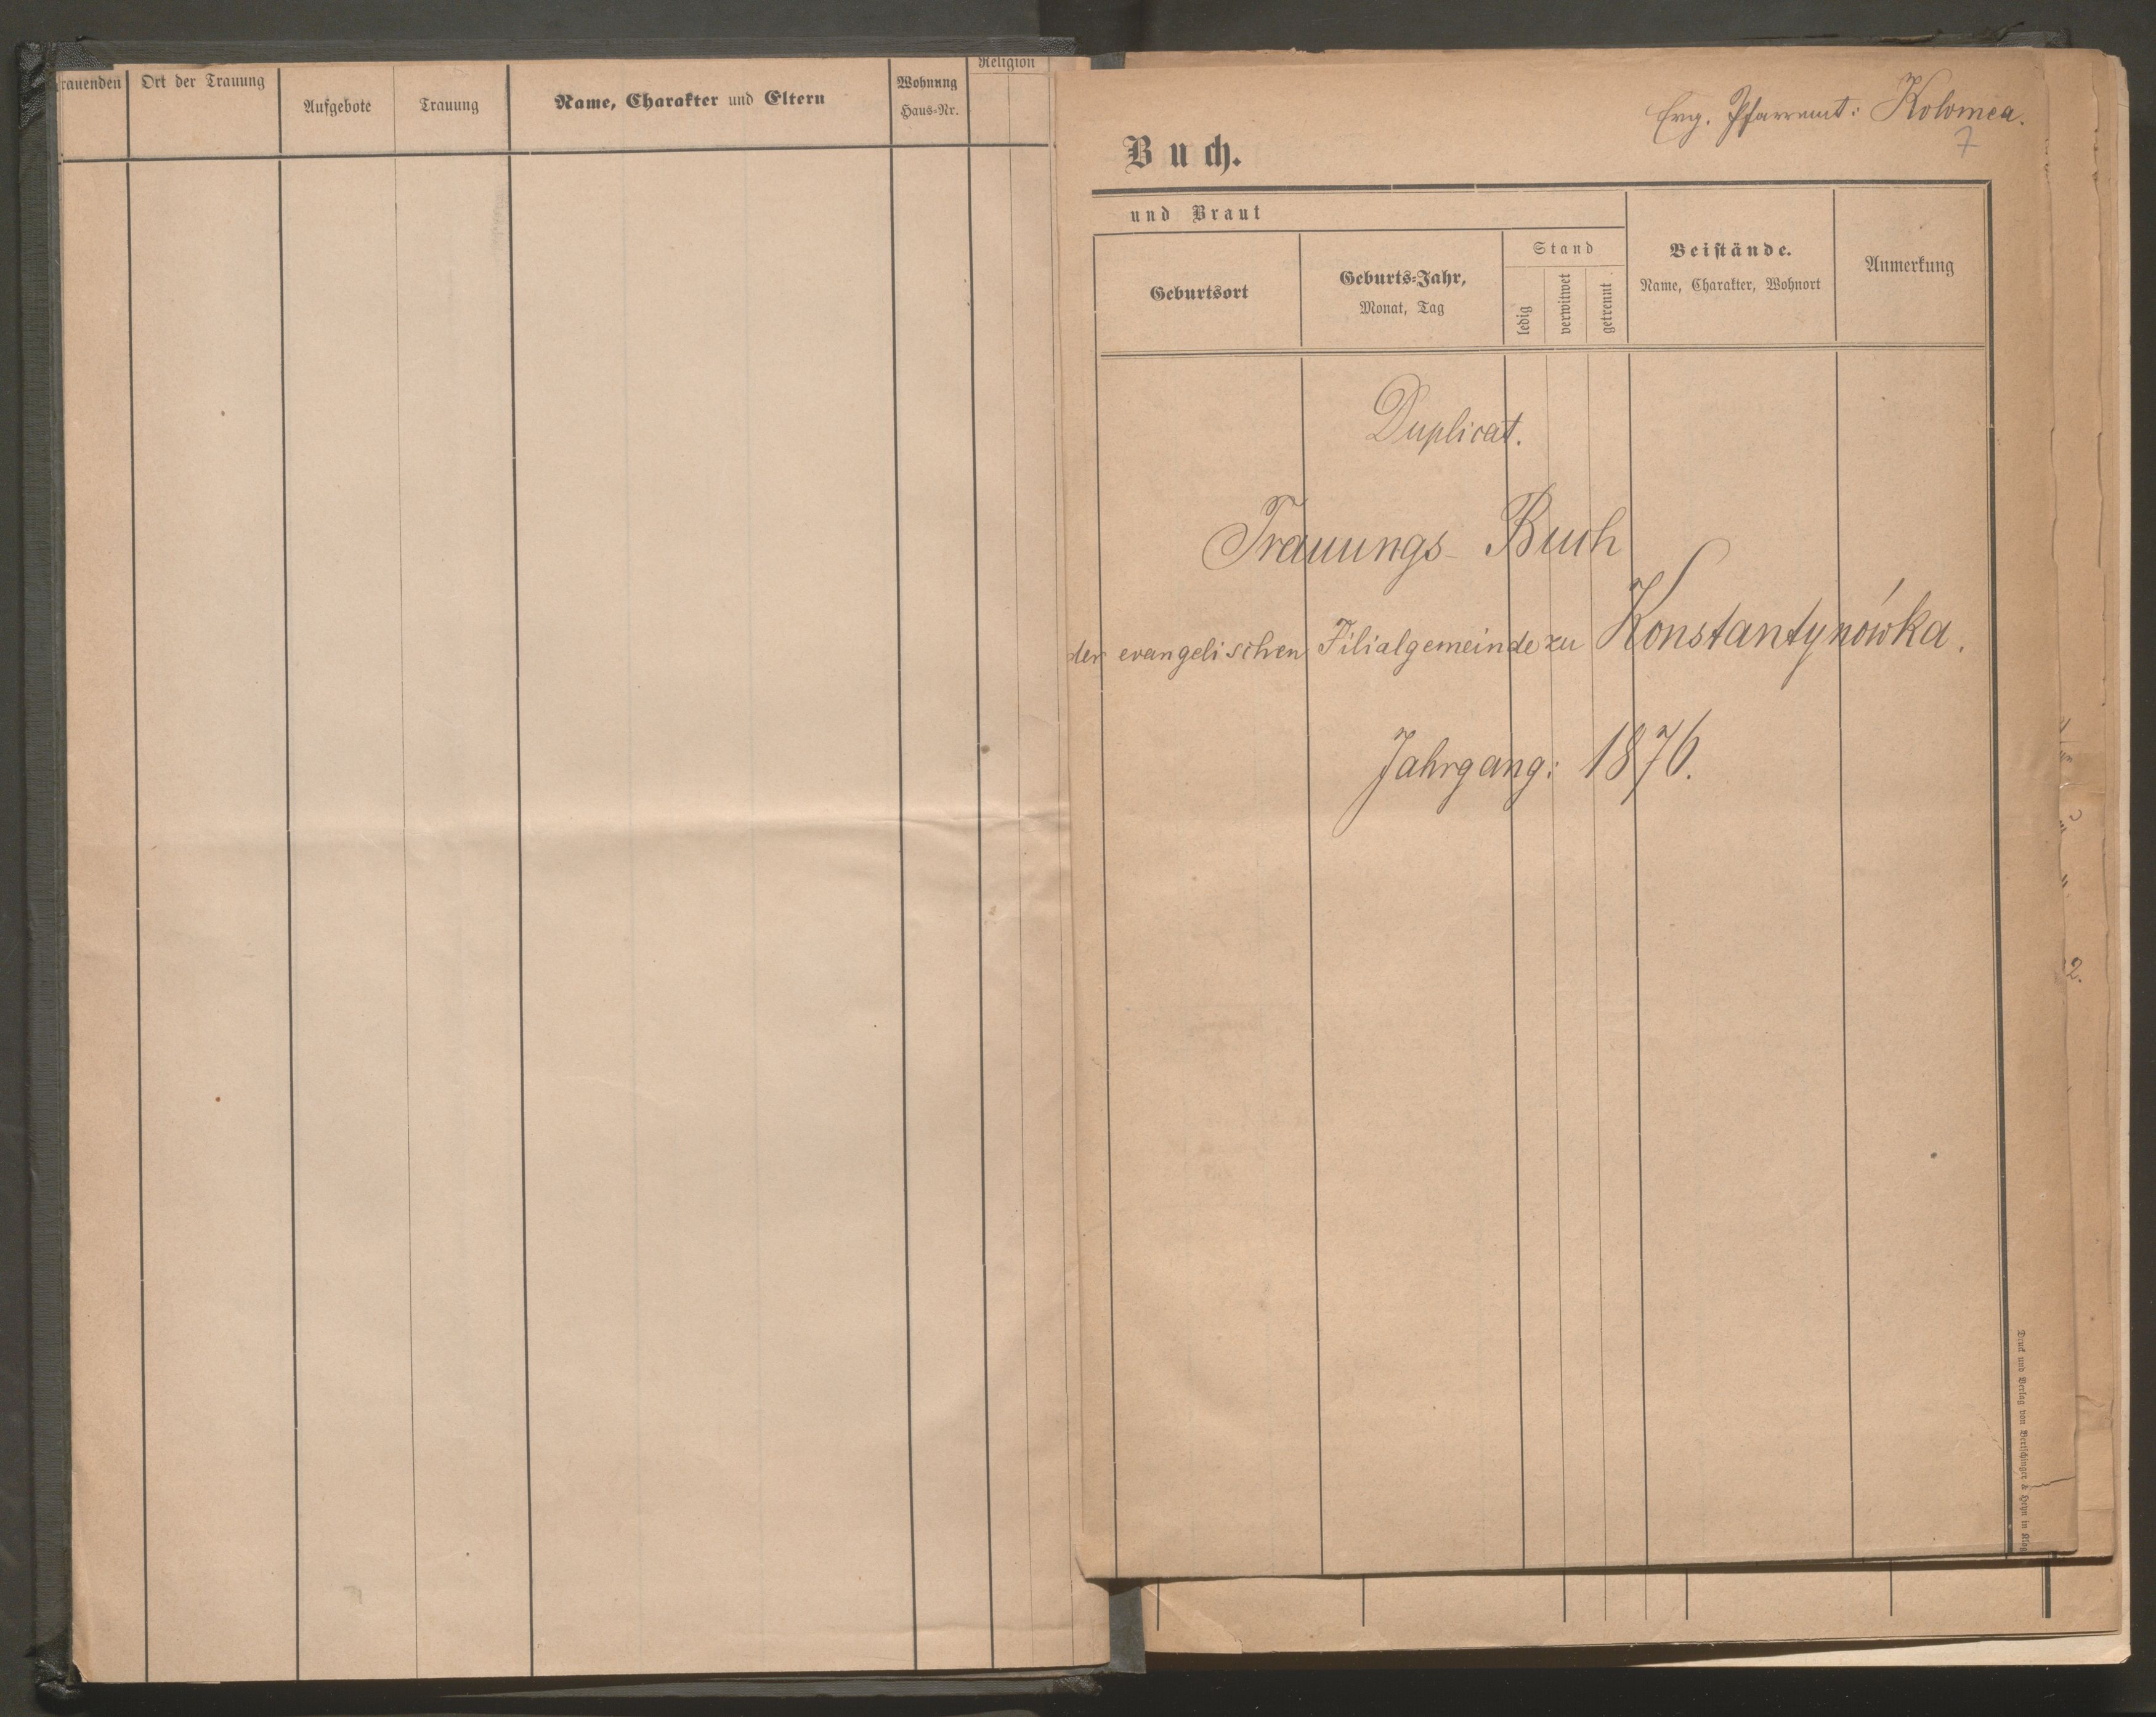 Ort der Trauung
Aufgebote
Trauung
Name, Charakter und Eltern
Wohnung
Haus-Nr.
Religion
Evg. Pfarramt: Kolomea.
7
Buch.
und Braut
Geburtsort
Geburts-Jahr,
Monat, Tag
Stand
ledig
verwitwet
getrennt
Beistände.
Name, Charakter, Wohnort
Anmerkung
Duplicat.
Trauungs-Buch
der evangelischen Filialgemeinde zu Konstantynówka.
Jahrgang: 1876.
Druck und Verlag von Bertschinger & Heyn in Klag
2.